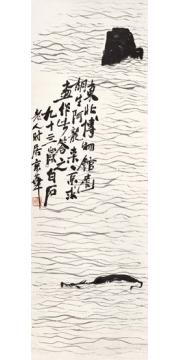 東北博物館
生阿龍来京求
画作此答之
九十三歲白石
老人時居京華